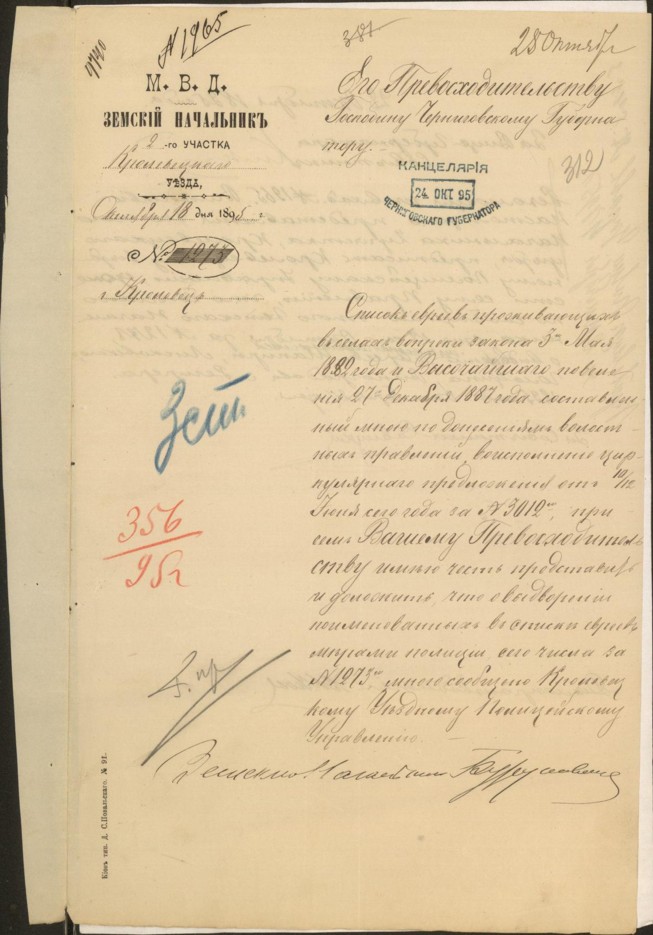 4740
N 1965
381
28 Октября
М. В. Д.
ЗЕМСКІЙ НАЧАЛЬНИКЪ
2 -го УЧАСТКА
Кролевецкаго
УѢЗДА,
Октября 18 дня 1895 г.
№ 1275
г. Кролевецъ
Его Превосходительству
Господину Черниговскому Губерна
тору.
312
КАНЦЕЛЯРІЯ
24. ОКТ 95
ЧЕРНИГОВСКАГО ГУБЕРНАТОРА
Списокъ евреевъ проживающихъ
въ селахъ вопреки закона 3го Мая
1882 года и Высочайшаго повеле
нія 27го Декабря 1887 года составлен
ный мною по донесеніямъ волост-
ныхъ правленій, во исполненіе цир
кулярнаго предложенія отъ 10/12
Іюня сего года за N 3012м, при
семъ Вашему Превосходитель
ству имѣю честь представить
и доложить, что о выдвореніи
поименованныхъ въ спискѣ евреевъ
мѣрами полиціи сего числа за
N 1273м, мною сообщено Кролевец
кому Уѣздному Полицейскому
Управленію.
3 ст.
356
95 г
Земскій Начальникъ
Кіевъ тип. Д. С. Повальскаго. № 91.